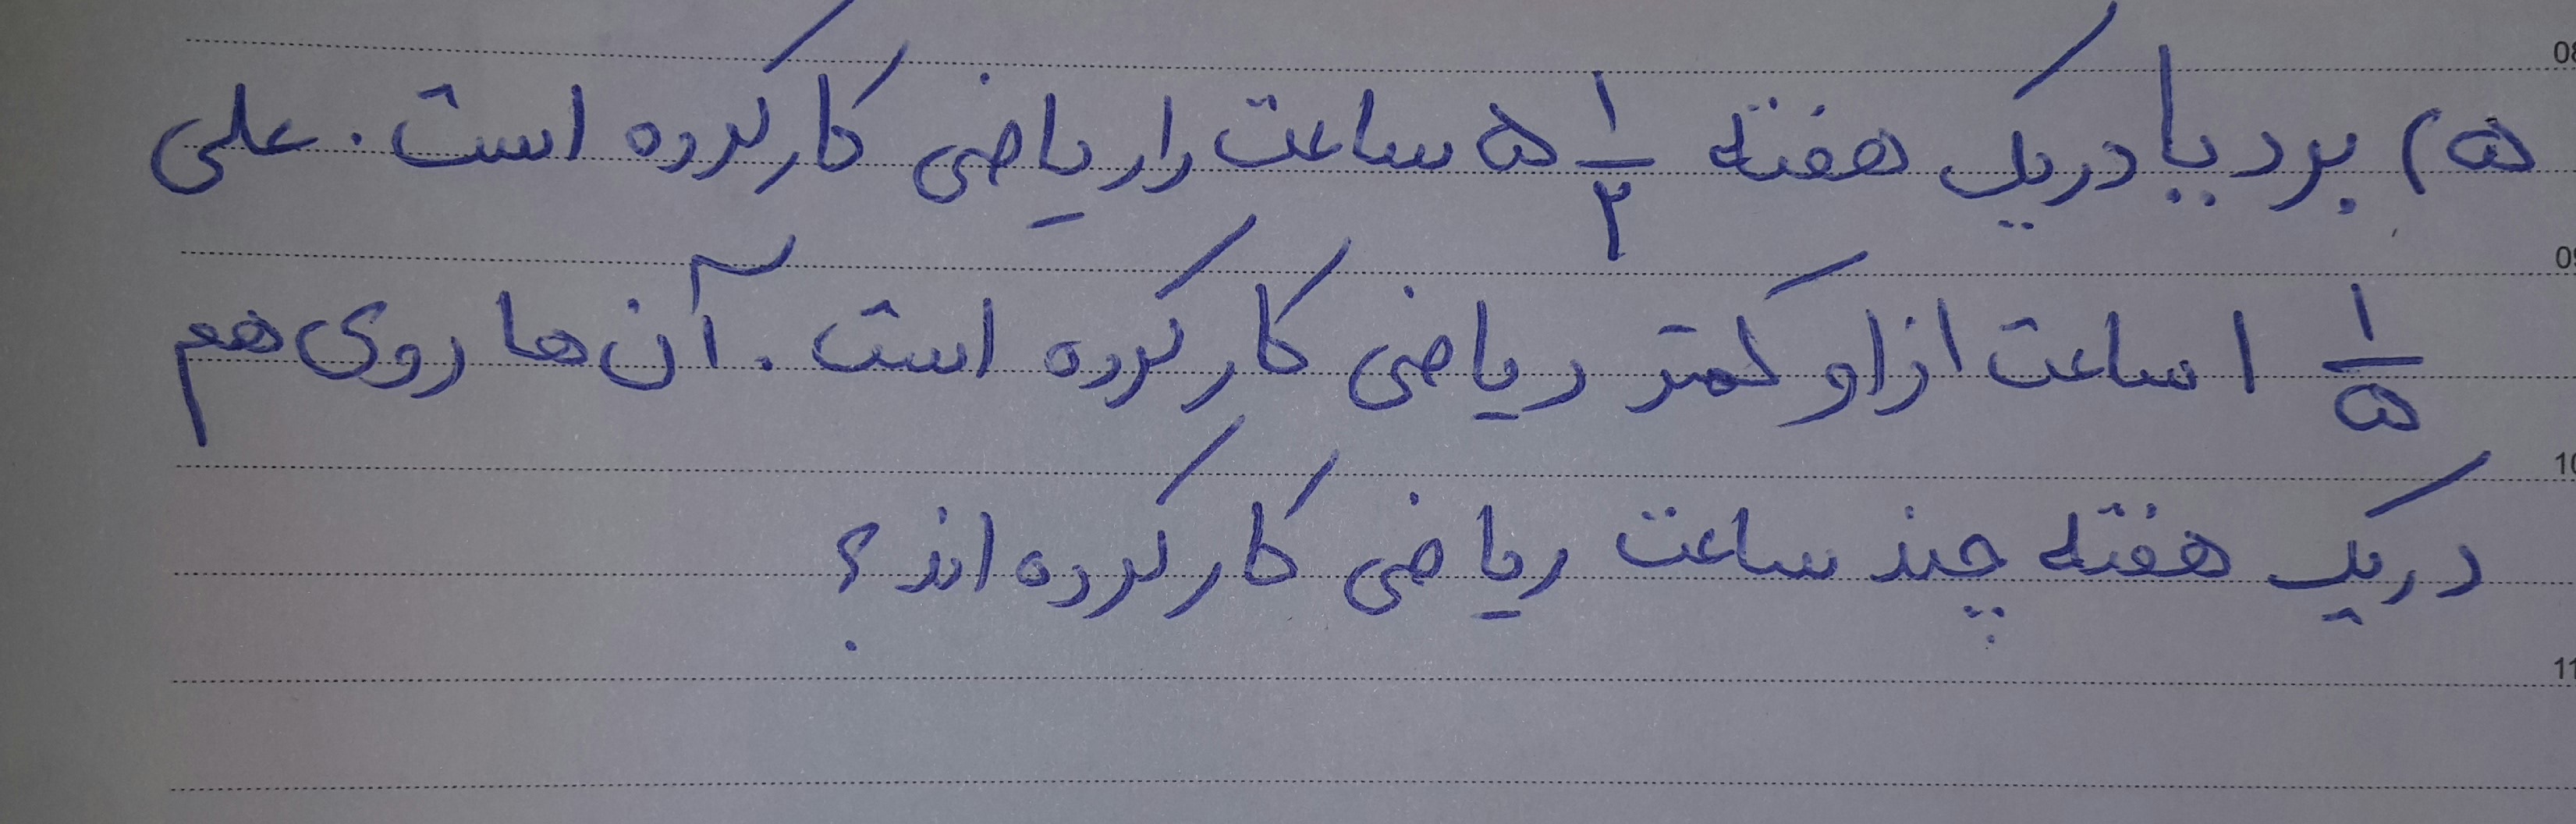 ۵) بردیا در یک هفته ۵ ۱/۲ ساعت را ریاضی کار کرده است. علی
۱ ۱/۵ ساعت از او کمتر ریاضی کار کرده است. آن ها روی هم
در یک هفته چند ساعت ریاضی کار کرده اند؟
08
09
10
11